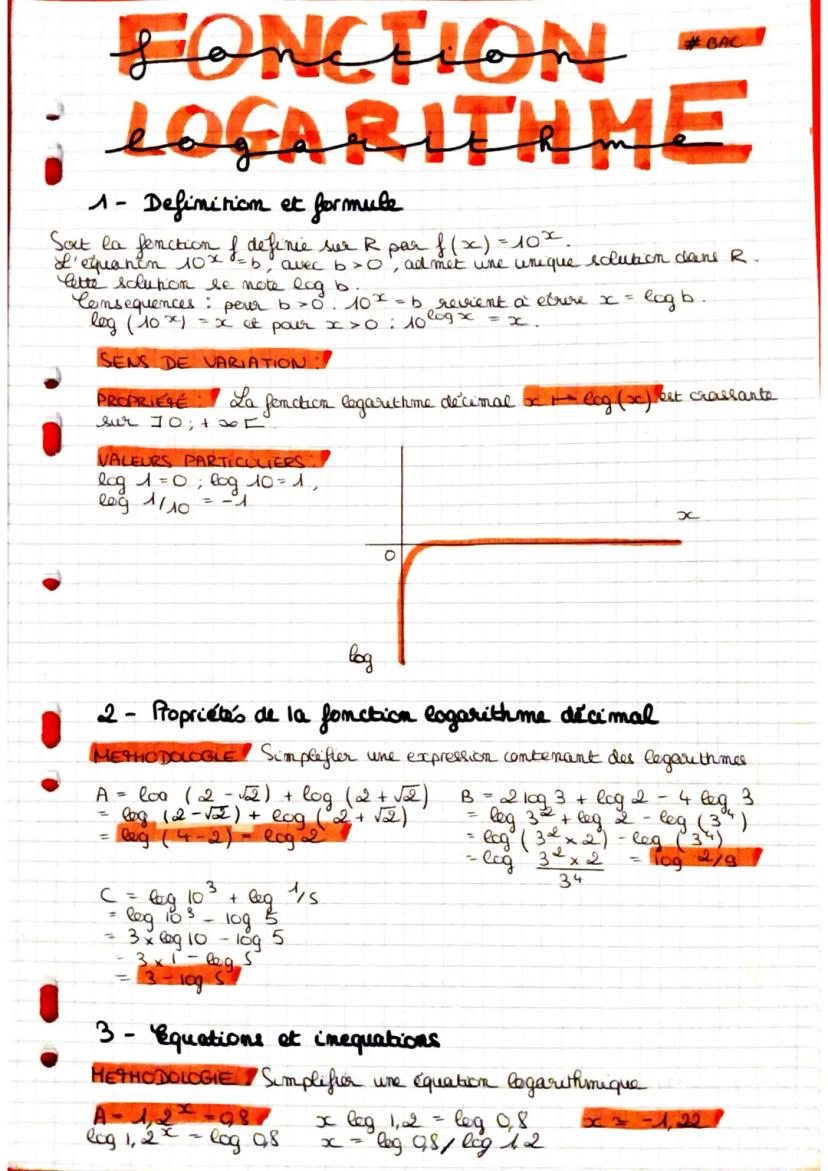 FONCTION
fonction
# BAC
LOGARITHME
logarithme
1 - Definition et formule
Soit la fonction f définie sur R par f(x) = 10^x.
L'équation 10^x = b, avec b > 0, admet une unique solution dans R.
Cette solution se note log b.
Consequences : pour b > 0. 10^x = b revient à écrire x = log b.
log (10^x) = x et pour x > 0 : 10^log x = x.
SENS DE VARIATION :
PROPRIÉTÉ : La fonction logarithme décimal x ↦ log (x) est croissante
sur ]0 ; +∞[
VALEURS PARTICULIERS :
log 1 = 0 ; log 10 = 1,
log 1/10 = -1
x
0
log
2 - Propriétés de la fonction logarithme décimal
METHODOLOGIE / Simplifier une expression contenant des logarithmes
A = log (2 - √2) + log (2 + √2)
= log (2 - √2) + log (2 + √2)
= log (4 - 2) = log 2
B = 2 log 3 + log 2 - 4 log 3
= log 3² + log 2 - log (3⁴)
= log (3² x 2) - log (3⁴)
= log 3² x 2 / 3⁴ = log 2/9
C = log 10³ + log 1/5
= log 10³ - log 5
= 3 x log 10 - log 5
= 3 x 1 - log 5
= 3 - log 5
3 - Equations et inequations
METHODOLOGIE / Simplifier une équation logarithmique
A = 1,2^x = 0,8 x log 1,2 = log 0,8 x ≈ -1,22
log 1,2^x = log 0,8 x = log 0,8 / log 1,2